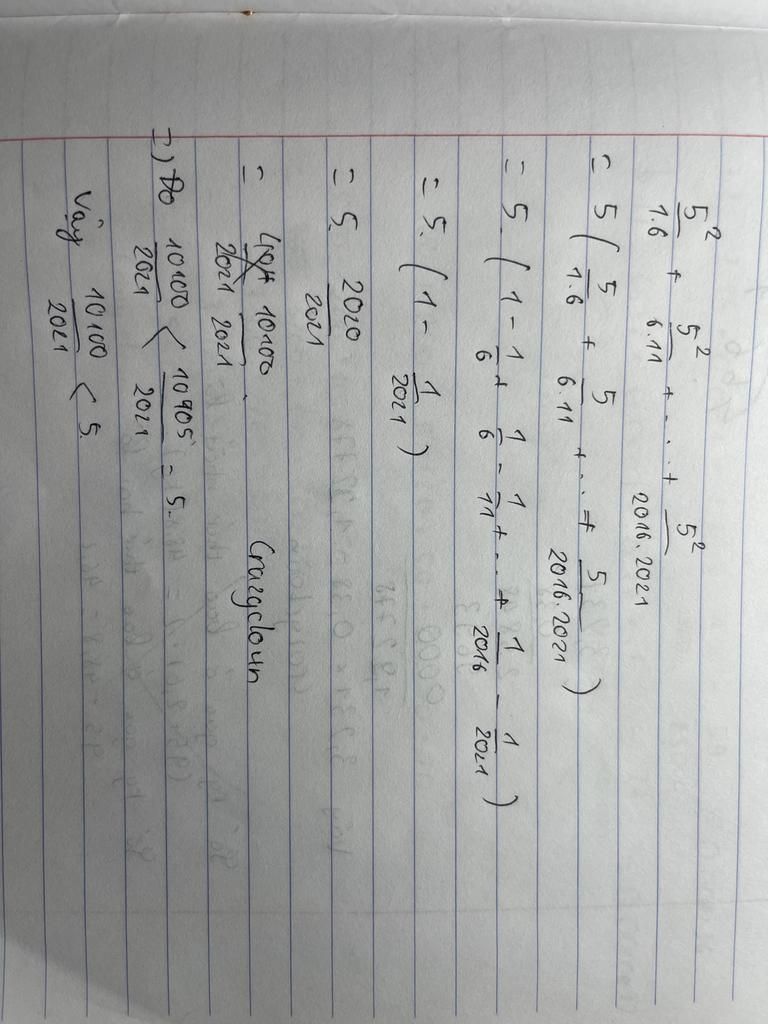 5²/1.6 + 5²/6.11 + ... + 5²/2016.2021
= 5 ( 5/1.6 + 5/6.11 + ... + 5/2016.2021 )
= 5. ( 1 - 1/6 + 1/6 - 1/11 + ... + 1/2016 - 1/2021 )
= 5. ( 1 - 1/2021 )
= 5. 2020/2021
= 10100/2021 . Crazycloun
=) Do 10100/2021 < 10905/2021 = 5.
Vậy 10100/2021 < 5.